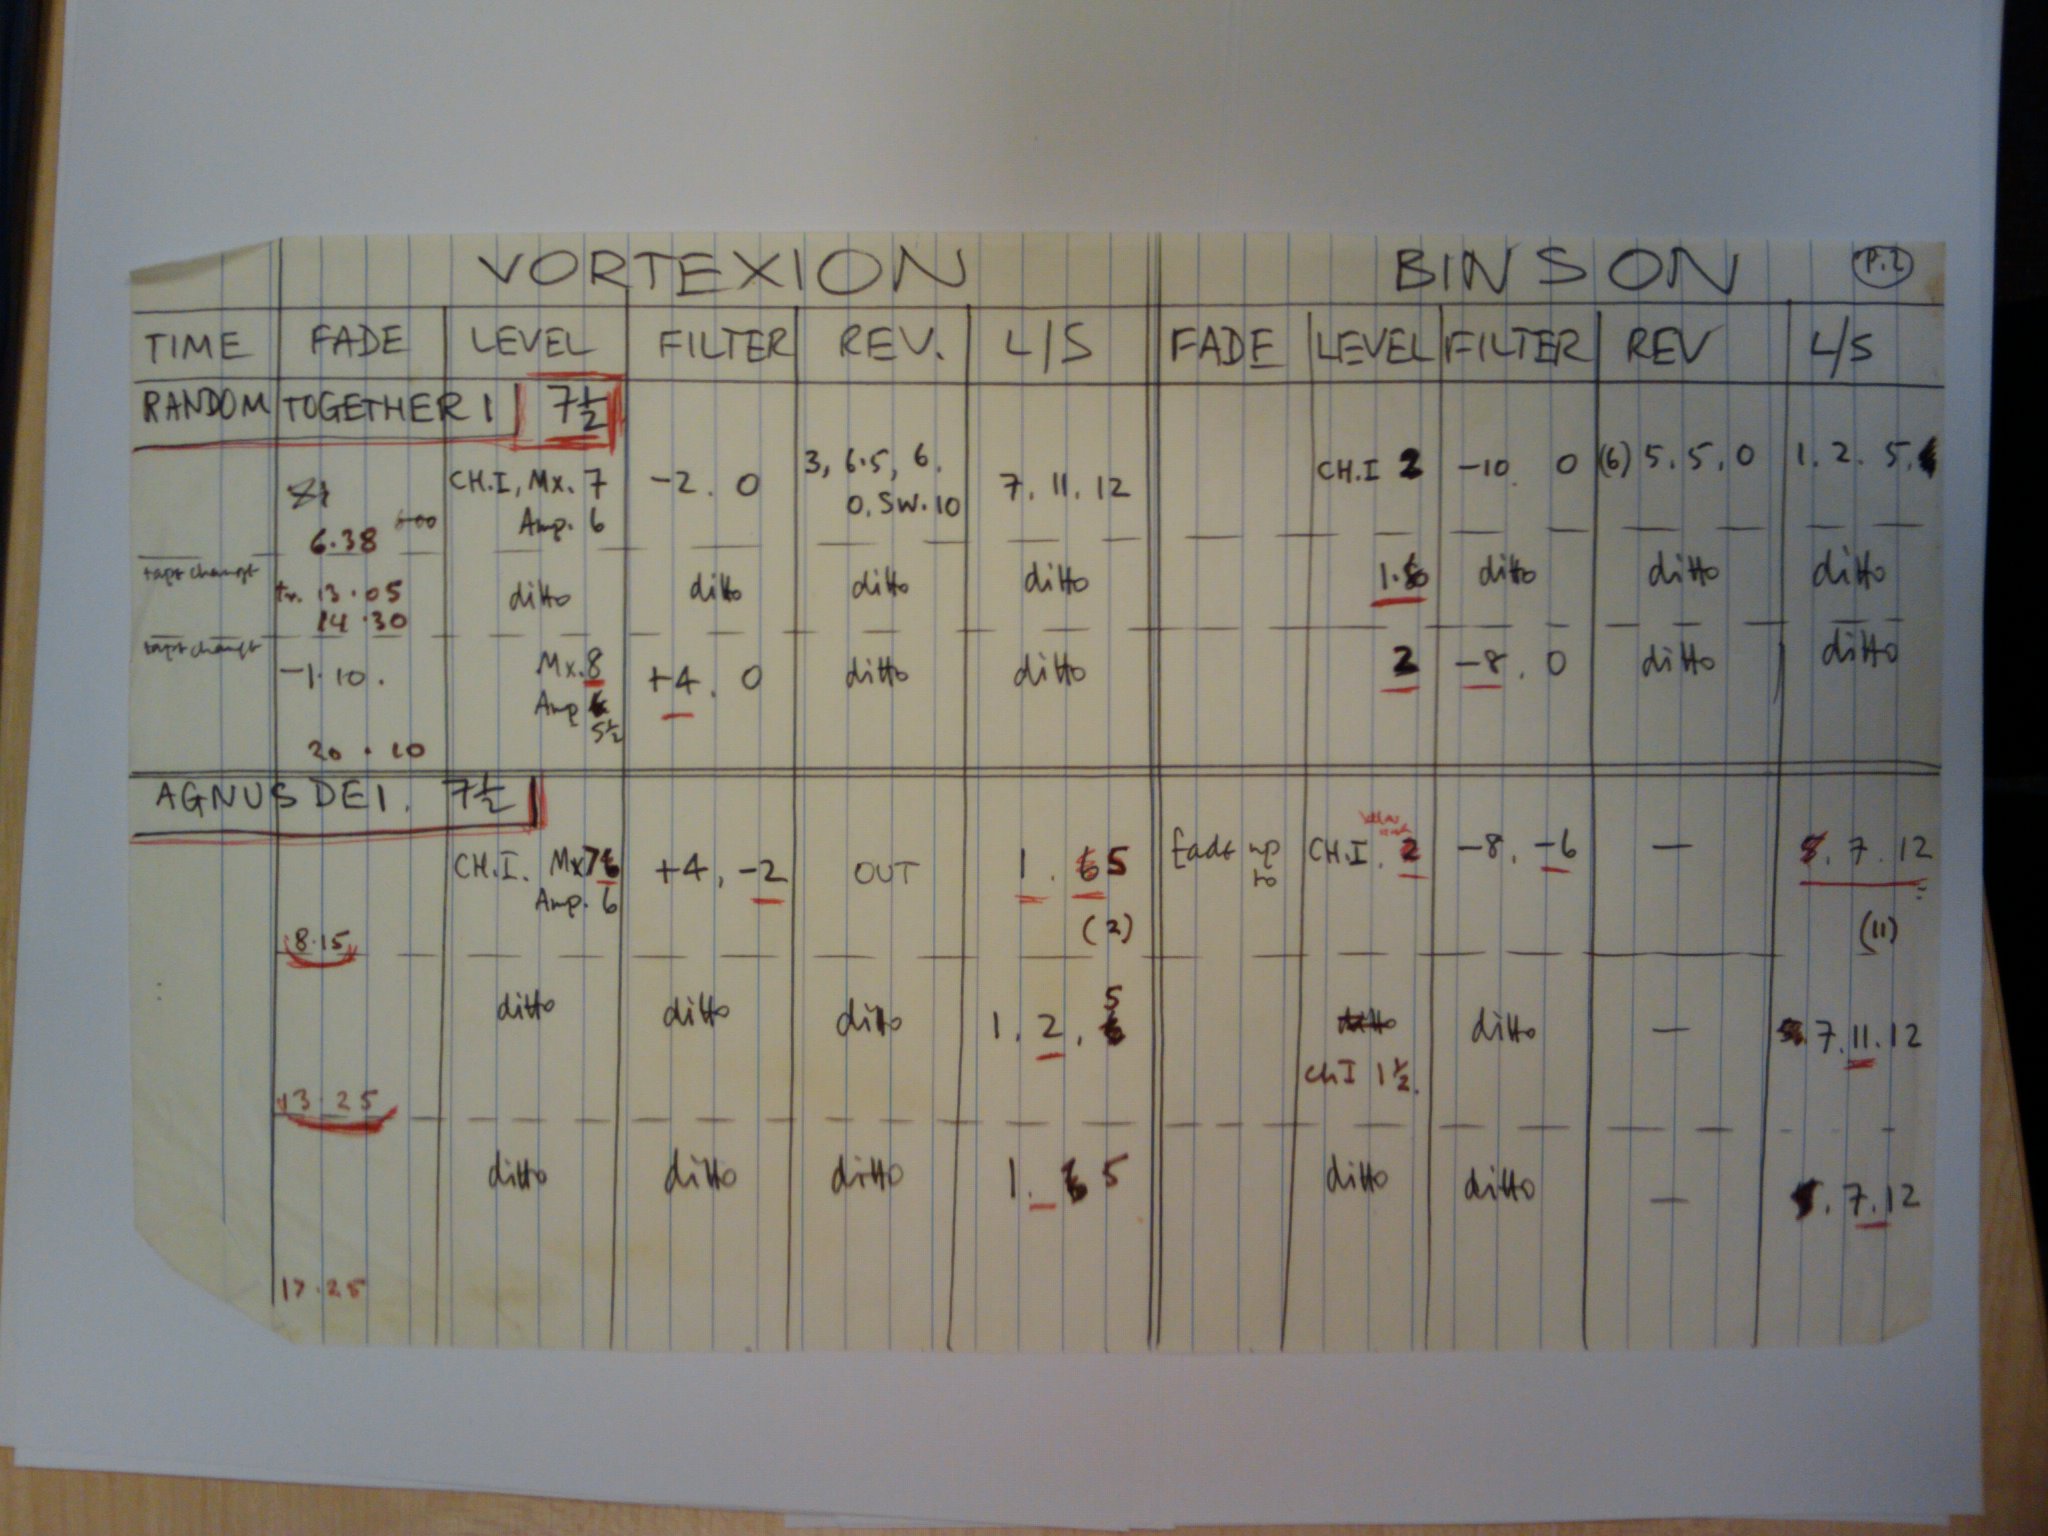 VORTEXION BINSON P.2
TIME FADE LEVEL FILTER REV. L/S FADE LEVEL FILTER REV L/S
RANDOM TOGETHER 1 7½
CH.I, Mx. 7 -2. 0 3, 6.5, 6. 7. 11. 12 CH.I 2 -10. 0 (6) 5. 5. 0 1. 2. 5.
Amp. 6 0. SW. 10
6.38
tape change
tr. 13.05 ditto ditto ditto ditto ditto ditto ditto
14.30
tape change
-1.10. Mx. 8 +4. 0 ditto ditto 2 -8. 0 ditto ditto
Amp
5½
20.10
AGNUS DEI. 7½
CH.I. Mx 7 +4, -2 OUT 1. 5 fade up CH.I. 2 -8. -6 — 7. 12
Amp. 6 to
(2) (11)
8.15
ditto ditto ditto 1. 2. 5 ditto ditto — 7. 11. 12
ch I 1½.
13.25
ditto ditto ditto 1. 5 ditto ditto — 7. 12
17.25